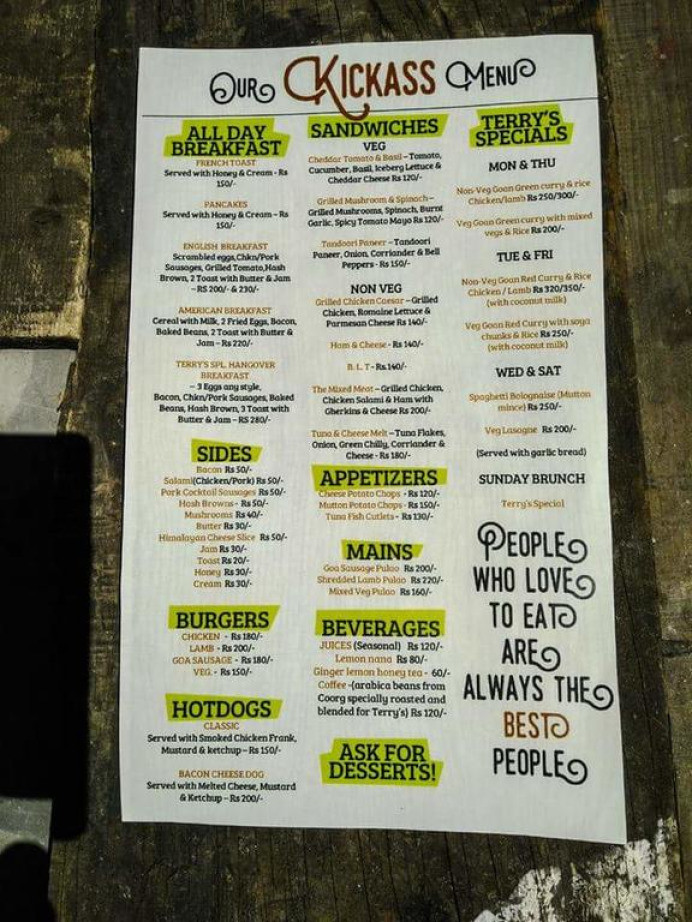 OUR KICKASS MENU
ALL DAY
BREAKFAST
FRENCH TOAST
Served with Honey & Cream - Rs
150/-
PANCAKES
Served with Honey & Cream - Rs
150/-
ENGLISH BREAKFAST
Scrambled eggs,Chkn/Pork
Sausages, Grilled Tomato,Hash
Brown, 2 Toast with Butter & Jam
- RS 200/- & 230/-
AMERICAN BREAKFAST
Cereal with Milk, 2 Fried Eggs, Bacon,
Baked Beans, 2 Toast with Butter &
Jam - Rs 220/-
TERRY'S SPL. HANGOVER
BREAKFAST
- 3 Eggs any style,
Bacon, Chkn/Pork Sausages, Baked
Beans, Hash Brown, 3 Toast with
Butter & Jam - RS 280/-
SIDES
Bacon Rs 50/-
Salami(Chicken/Pork) Rs 50/-
Pork Cocktail Sausages Rs 50/-
Hash Browns - Rs 50/-
Mushrooms Rs 40/-
Butter Rs 30/-
Himalayan Cheese Slice Rs 50/-
Jam Rs 30/-
Toast Rs 20/-
Honey Rs 30/-
Cream Rs 30/-
BURGERS
CHICKEN - Rs 180/-
LAMB - Rs 200/-
GOA SAUSAGE - Rs 180/-
VEG. - Rs 150/-
HOTDOGS
CLASSIC
Served with Smoked Chicken Frank,
Mustard & ketchup - Rs 150/-
BACON CHEESE DOG
Served with Melted Cheese, Mustard
& Ketchup - Rs 200/-
SANDWICHES
VEG
Cheddar Tomato & Basil - Tomato,
Cucumber, Basil, Iceberg Lettuce &
Cheddar Cheese Rs 120/-
Grilled Mushroom & Spinach -
Grilled Mushrooms, Spinach, Burnt
Garlic, Spicy Tomato Mayo Rs 120/-
Tandoori Paneer - Tandoori
Paneer, Onion, Corriander & Bell
Peppers - Rs 150/-
NON VEG
Grilled Chicken Caesar - Grilled
Chicken, Romaine Lettuce &
Parmesan Cheese Rs 140/-
Ham & Cheese - Rs 140/-
B. L. T - Rs.140/-
The Mixed Meat - Grilled Chicken,
Chicken Salami & Ham with
Gherkins & Cheese Rs 200/-
Tuna & Cheese Melt - Tuna Flakes,
Onion, Green Chilly, Corriander &
Cheese - Rs 180/-
APPETIZERS
Cheese Potato Chops - Rs 120/-
Mutton Potato Chops - Rs 150/-
Tuna Fish Cutlets - Rs 130/-
MAINS
Goa Sausage Pulao Rs 200/-
Shredded Lamb Pulao Rs 220/-
Mixed Veg Pulao Rs 160/-
BEVERAGES
JUICES (Seasonal) Rs 120/-
Lemon nana Rs 80/-
Ginger lemon honey tea - 60/-
Coffee -(arabica beans from
Coorg specially roasted and
blended for Terry's) Rs 120/-
ASK FOR
DESSERTS!
TERRY'S
SPECIALS
MON & THU
Non-Veg Goan Green curry & rice
Chicken/lamb Rs 250/300/-
Veg Goan Green curry with mixed
vegs & Rice Rs 200/-
TUE & FRI
Non-Veg Goan Red Curry & Rice
Chicken / Lamb Rs 320/350/-
(with coconut milk)
Veg Goan Red Curry with soya
chunks & Rice Rs 250/-
(with coconut milk)
WED & SAT
Spaghetti Bolognaise (Mutton
mince) Rs 250/-
Veg Lasagne Rs 200/-
(Served with garlic bread)
SUNDAY BRUNCH
Terry's Special
PEOPLE
WHO LOVE
TO EAT
ARE
ALWAYS THE
BEST
PEOPLE